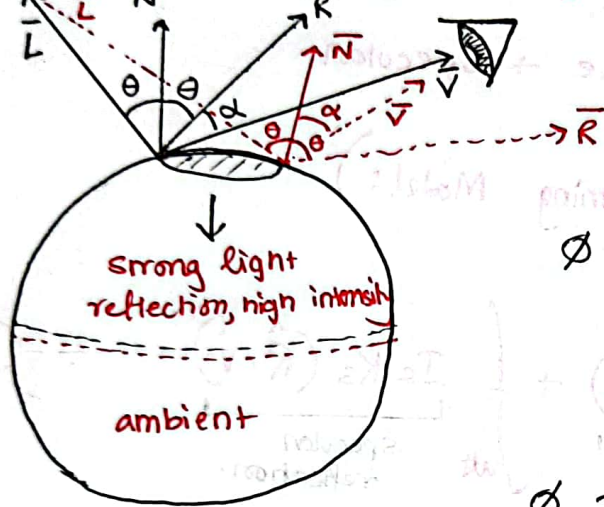 L N R
L̅ N̅
θ θ α V̅
θ α θ V̅
R̅
strong light
reflection, high intensity
ambient
Ø
Ø